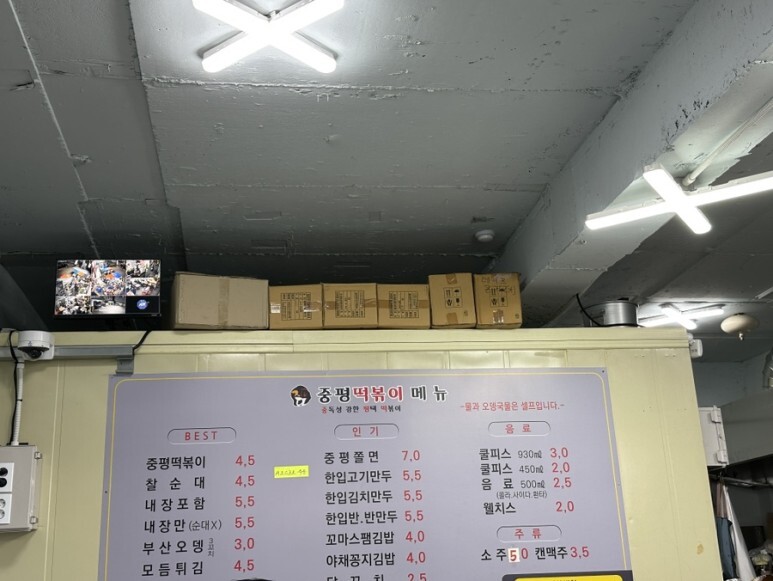 중평떡볶이 메뉴
중독성 강한 평택 떡볶이
-물과 오뎅국물은 셀프입니다.-
BEST
중평떡볶이 4,5
찰순대 4,5
내장포함 5,5
내장만(순대X) 5,5
부산오뎅 3꼬치 3,0
모듬튀김 4,5
인기
중평쫄면 7,0
한입고기만두 5,5
한입김치만두 5,5
한입반.반만두 5,5
꼬마스팸김밥 4,0
야채꽁지김밥 4,0
닭꼬치 2,5
음료
쿨피스 930㎖ 3,0
쿨피스 450㎖ 2,0
음료 500㎖ 2,5
(콜라.사이다.환타)
웰치스 2,0
주류
소주 5,0 캔맥주 3,5